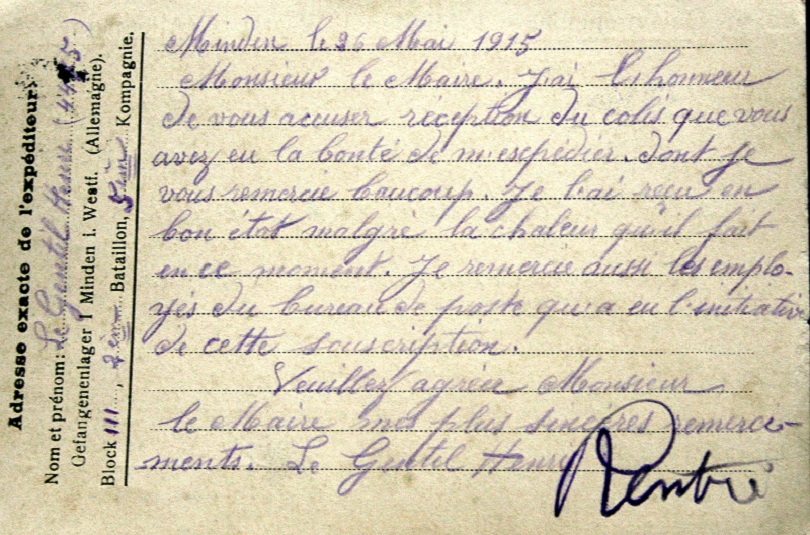 Adresse exacte de l'expéditeur:
Nom et prénom: Le Gentil Henri (4425)
Gefangenenlager I Minden i. Westf. (Allemagne).
Block III, 2em Bataillon, 5em Kompagnie.
Minden le 26 Mai 1915
Monsieur le Maire. J'ai l'honneur
de vous accuser réception du colis que vous
avez eu la bonté de m'expédier. dont je
vous remercie baucoup. Je l'ai reçu en
bon état malgré la chaleur qu'il fait
en ce moment. Je remercie aussi les emplo-
yés du bureau de poste qu'a eu l'initiative
de cette souscription.
Veuillez agréer Monsieur
le Maire mes plus sincères remerce-
ments. Le Gentil Henri
Rentré